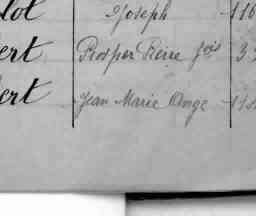 lot Joseph 116
ert Prosper Pierre fois 3
bert Jean Marie Ange